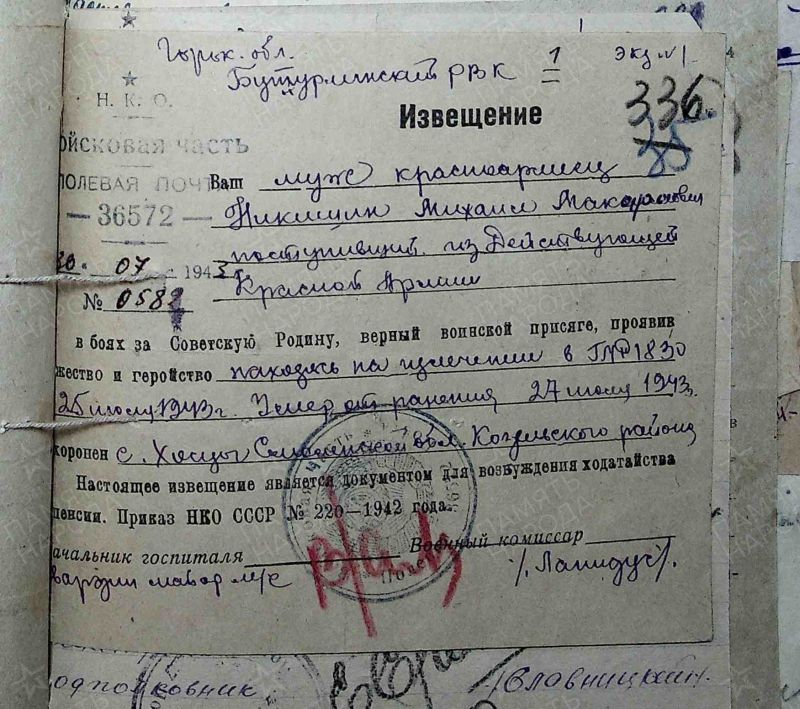 Горьк. обл.
Бутурлинский РВК 1 экз N1
Н. К. О.
Извещение
336.
ойсковая часть
ПОЛЕВАЯ ПОЧТ
— 36572 —
30 " 07 194
№ 0582
Ваш муж красноармеец
Никишин Михаил Макарович
поступивший из Действующей
Красной Армии
в боях за Советскую Родину, верный воинской присяге, проявив
жество и геройство находясь на излечении в 1830
25 июля 1943 г. Умер от ранения 27 июля 1943г.
хоронен с. Хосцы Смоленской обл. Козельского района
Настоящее извещение является документом для возбуждения ходатайства
пенсии. Приказ НКО СССР № 220—1942 года.
ачальник госпиталя Военный комиссар
майор м/с /Лапидус/.
одполковник /Славницкий/.